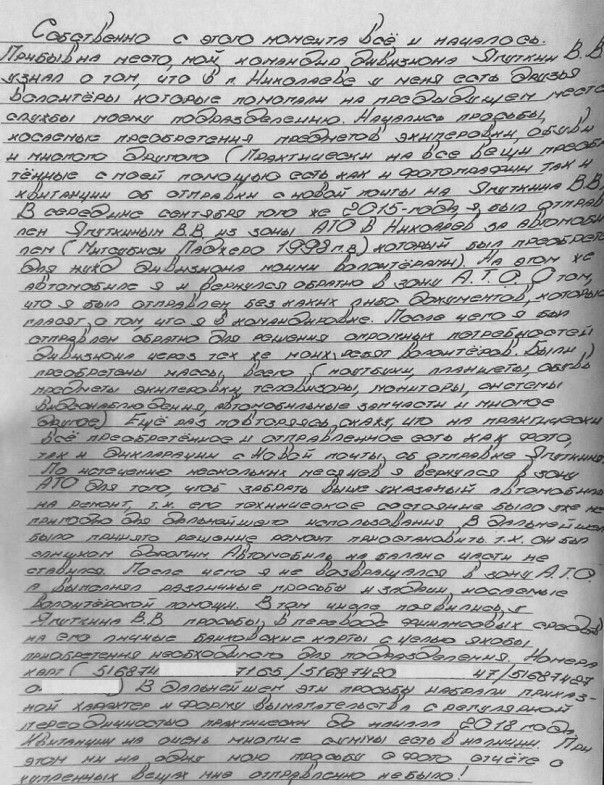 Собственно с этого момента всё и началось.
Прибыв на место, мой командир дивизиона Якуткин В.В.
узнал о том, что в г. Николаеве у меня есть друзья
волонтёры которые помогали на предыдущем месте
службы моему подразделению. Начались просьбы,
касаемые преобретения предметов экиперовки, обуви
и многого другого (Практически на все вещи преобре
тённые с моей помощью есть как и фотографии так и
квитанции об отправки с новой почты на Якуткина В.В.
В середине сентября того же 2015-года, я был отправ
лен Якуткиным В.В. из зоны АТО в Николаев за автомоби
лем (Митсубиси Паджеро 1998 г.в.) который был преобрете
для нужд дивизиона моими волонтёрами). На этом же
автомобиле я и вернулся обратно в зону А.Т.О. О том,
что я был отправлен без каких либо документов, которые
гласят о том, что я в командировке. После чего я был
отправлен обратно для решения огромных потребностей
дивизиона через тех же моих ребят волонтёров. Были
преобретены массы, всего (ноутбуки, планшеты, обувь
предметы экиперовки, телевизоры, мониторы, системы
видеонаблюдения, автомобильные запчасти и многое
другое) Ещё раз повторяясь, скажу, что на практически
всё преобретённое и отправленное есть как фото,
так и дикларации с новой почты, об отправке Якуткина.
По истечению нескольких месяцев я вернулся в зону
АТО для того, чтоб забрать выше указаный автомобиль
на ремонт, т.к. его техническое состояние было уже не
пригодно для дальнейшего использования. В дальнейшем
было принято решение ремонт приостановить т.к. он был
слишком дорогим Автомобиль на баланс части не
ставился. После чего я не возвращался в зону А.Т.О.
а выполнял различные просьбы касаемые
волонтёрской помощи. В том числе появились у
Якуткина В.В. просьбы, в переводе финансовых средств
на его личные банковские карты с целью якобы
приобретения необходимого для подразделения. Номера
карт ( 516874 7165 / 51687420 47 / 51687427
0 ) В дальнейшем эти просьбы набрали приказ-
ной характер и форму вымагательства с регулярной
переодичностью практически до начала 2018 года
Квитанции на очень многие суммы есть в наличии. При
этом ни на одну мою просьбу о фото отчёте о
купленных вещах мне отправленно небыло!